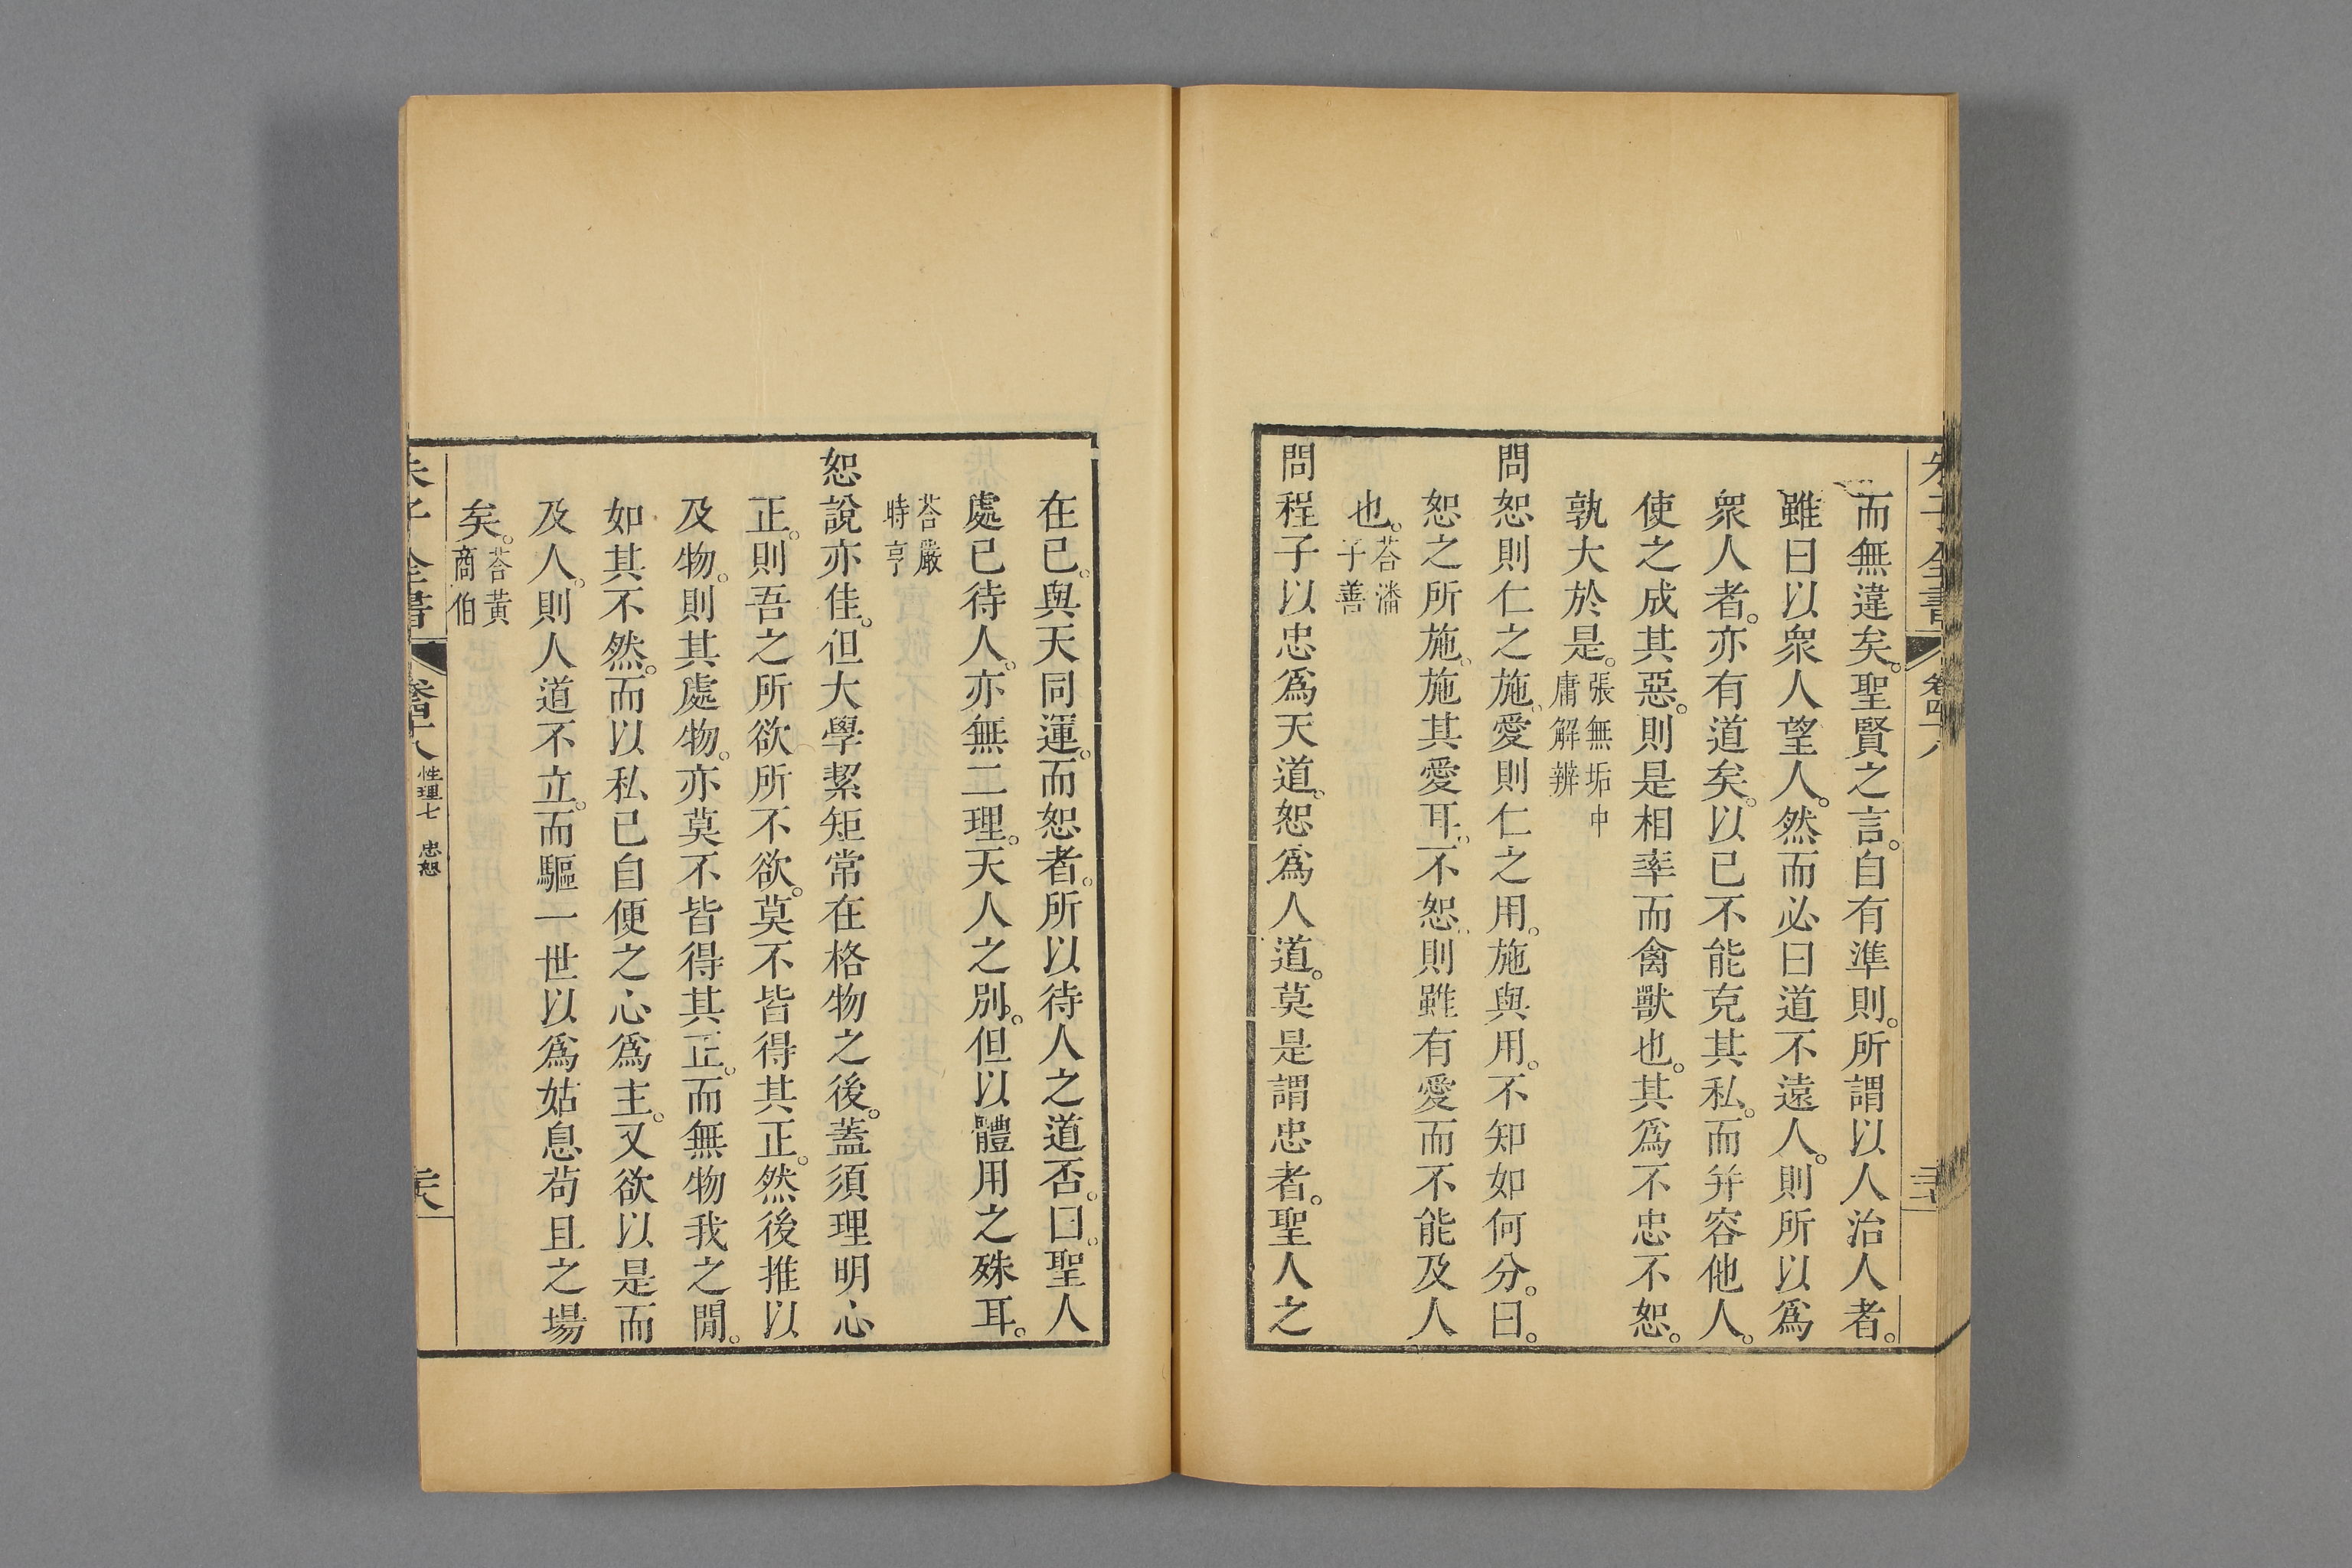 而無違矣。聖賢之言。自有準則。所謂以人治人者。
雖曰以衆人望人。然而必曰道不遠人。則所以爲
衆人者。亦有道矣。以已不能克其私。而并容他人。
使之成其惡。則是相率而禽獸也。其爲不忠不恕。
孰大於是。張無垢中
庸解辨
問恕則仁之施。愛則仁之用。施與用。不知如何分。曰。
恕之所施。施其愛耳。不恕。則雖有愛而不能及人
也。荅潘
子善
問程子以忠爲天道。恕爲人道。莫是謂忠者。聖人之
在已。與天同運。而恕者。所以待人之道否。曰。聖人
處已待人。亦無二理。天人之別。但以體用之殊耳。
荅嚴
時亨
恕說亦佳。但大學絜矩常在格物之後。蓋須理明心
正。則吾之所欲所不欲。莫不皆得其正。然後推以
及物。則其處物。亦莫不皆得其正。而無物我之閒。
如其不然。而以私已自便之心爲主。又欲以是而
及人。則人道不立。而驅一世以爲姑息苟且之場
矣。荅黃
商伯
朱子全書
卷四十八 性理七 忠恕